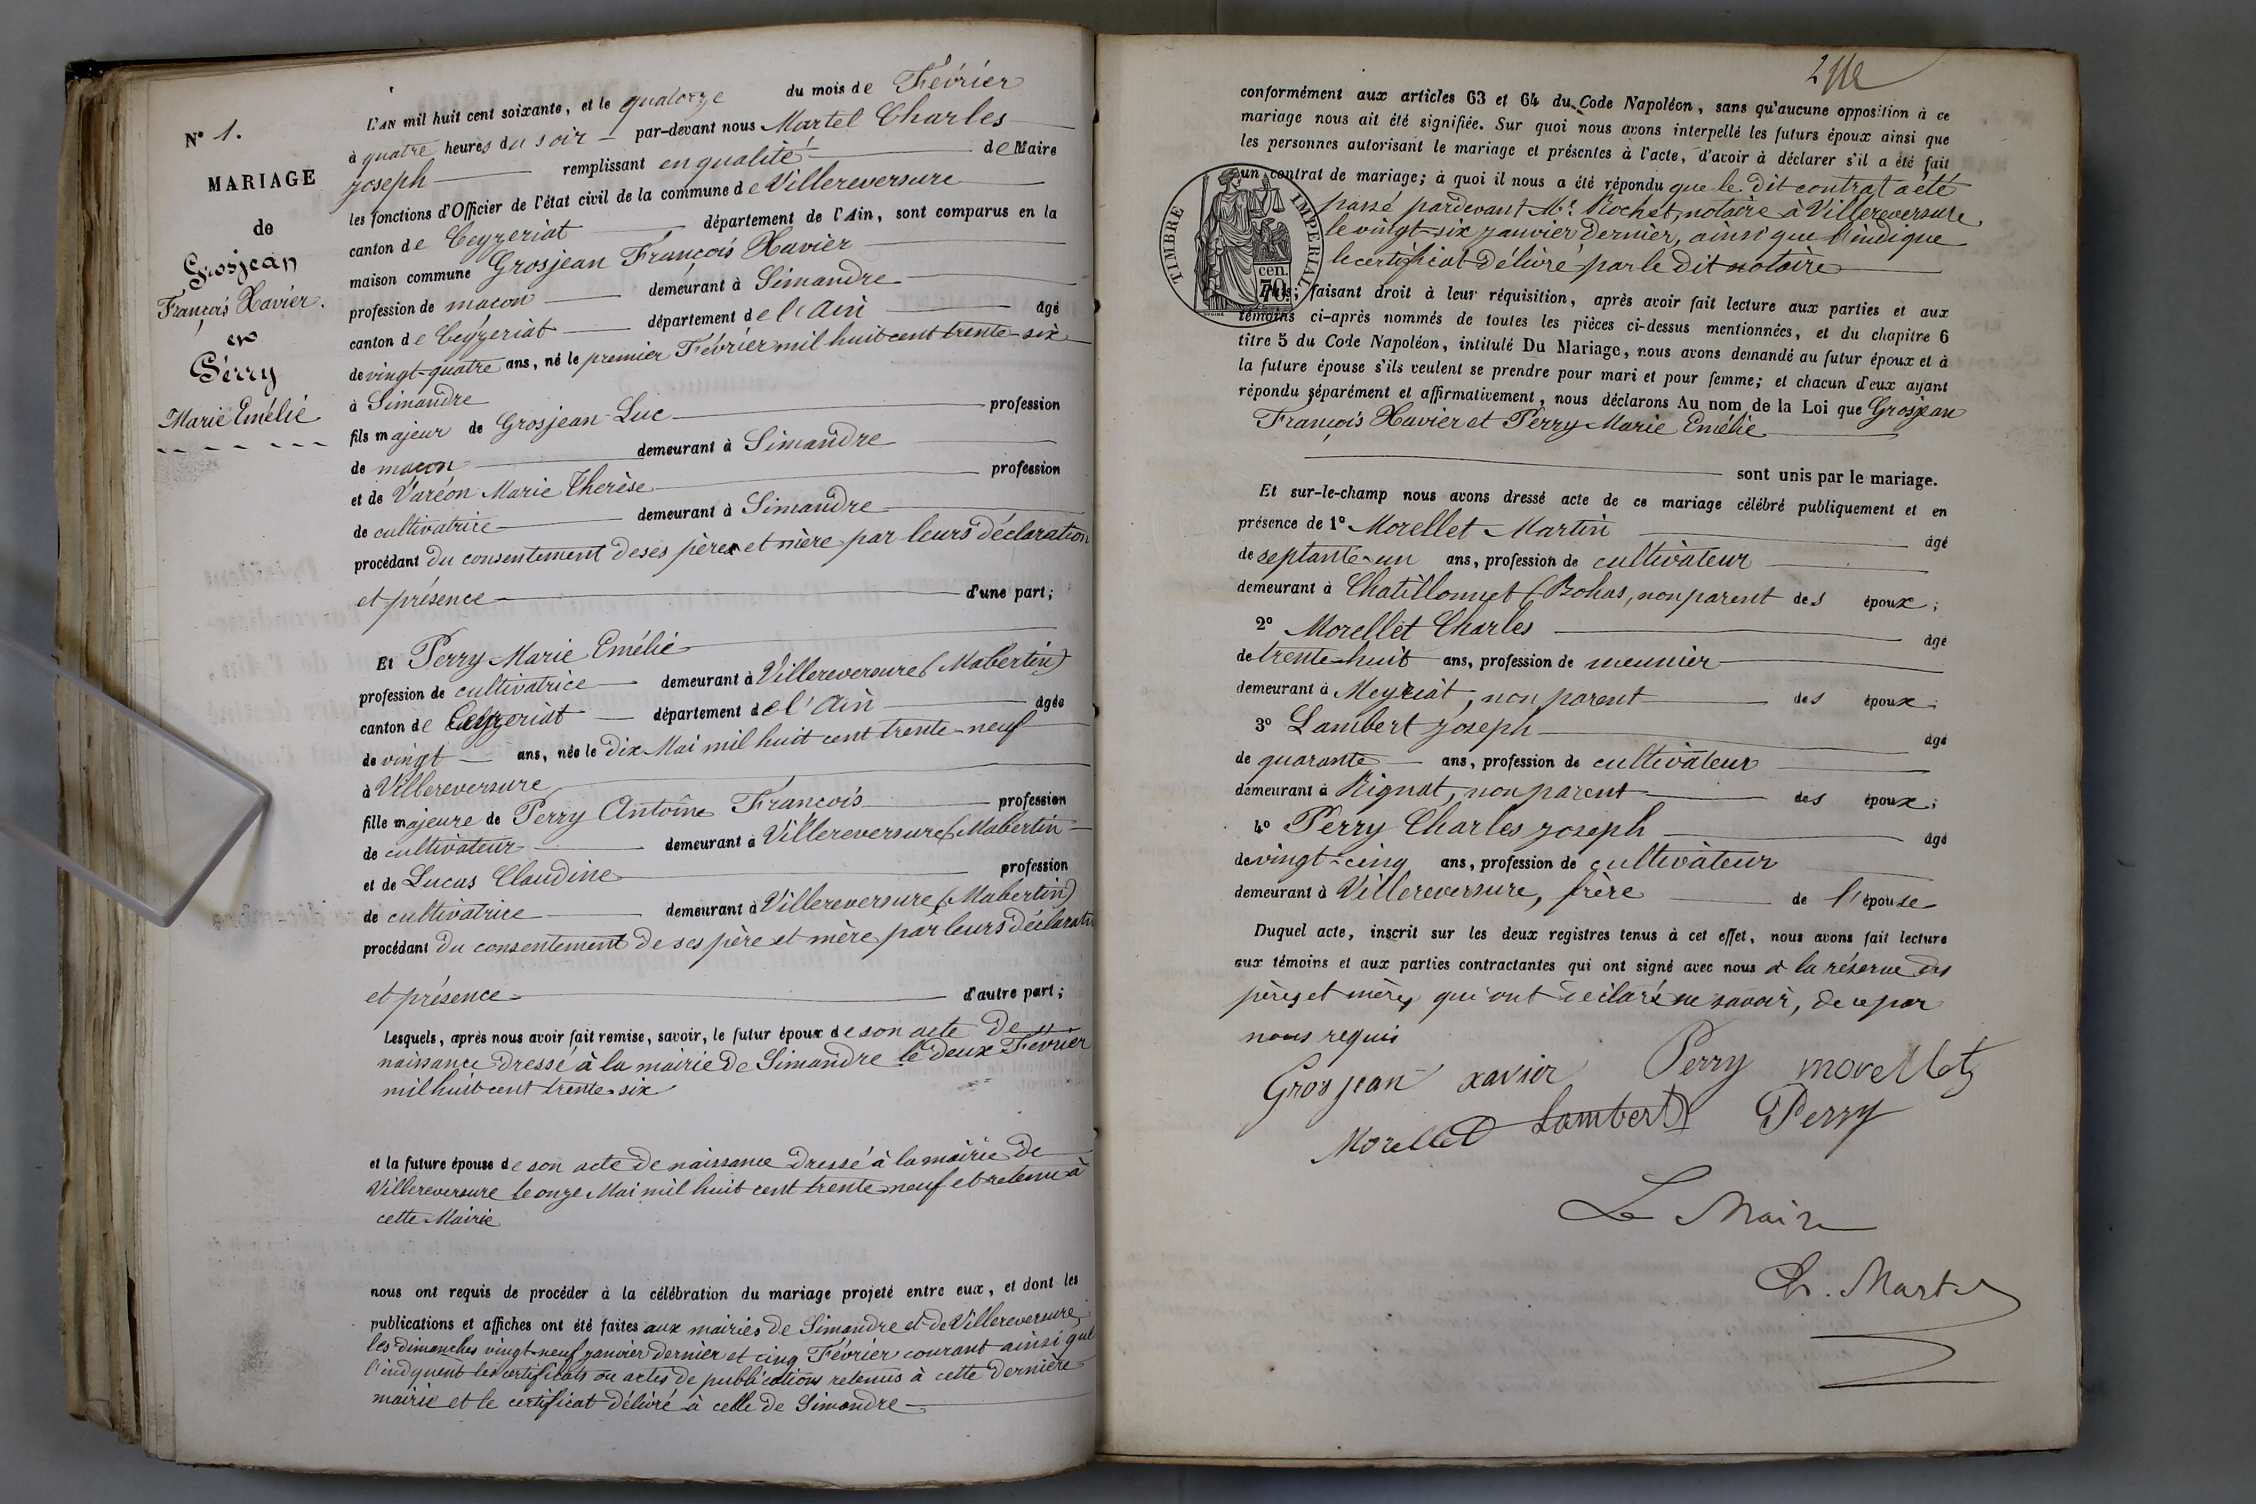 N° 1.
MARIAGE
de
Grosjean
François Xavier.
et
Perry
Marie Emélie
L'AN mil huit cent soixante, et le quatorze du mois de Février
à quatre heures du soir par-devant nous Martel Charles
joseph remplissant en qualité de Maire
les fonctions d'Officier de l'état civil de la commune de Villereversure
canton de Ceyzeriat département de l'Ain, sont comparus en la
maison commune Grosjean François Xavier
profession de maçon demeurant à Simandre
canton de Ceyzeriat département de l'Ain âgé
de vingt-quatre ans, né le premier Février mil huit cent trente-six
à Simandre
fils majeur de Grosjean Luc profession
de maçon demeurant à Simandre
et de Varéon Marie Thérèse profession
de cultivatrice demeurant à Simandre
procédant du consentement de ses père et mère par leurs déclaration
et présence d'une part;
Et Perry Marie Emélie
profession de cultivatrice demeurant à Villereversure (Mabertin)
canton de Ceyzeriat département de l'Ain âgée
de vingt ans, née le dix Mai mil huit cent trente-neuf
à Villereversure
fille majeure de Perry Antoine François profession
de cultivateur demeurant à Villereversure (Mabertin
et de Lucas Claudine profession
de cultivatrice demeurant à Villereversure (Mabertin)
procédant du consentement de ses père et mère par leurs déclaratio
et présence d'autre part;
Lesquels, après nous avoir fait remise, savoir, le futur époux de son acte de
naissance dressé à la mairie de Simandre le deux Février
mil huit cent trente-six
et la future épouse de son acte de naissance dressé à la mairie de
Villereversure le onze Mai mil huit cent trente-neuf et retenu à
cette Mairie
nous ont requis de procéder à la célébration du mariage projeté entre eux, et dont les
publications et affiches ont été faites aux mairies de Simandre et de Villereversure
les dimanches vingt-neuf janvier dernier et cinq Février courant ainsi que
l'indiquent les certificats ou actes de publications retenus à cette dernière
mairie et le certificat délivré à celle de Simandre
conformément aux articles 63 et 64 du Code Napoléon, sans qu'aucune opposition à ce
mariage nous ait été signifiée. Sur quoi nous avons interpellé les futurs époux ainsi que
les personnes autorisant le mariage et présentes à l'acte, d'avoir à déclarer s'il a été fait
un contrat de mariage; à quoi il nous a été répondu que le dit contrat a été
passé pardevant Mr. Rochet, notaire à Villereversure
le vingt-six janvier dernier, ainsi que l'indique
le certificat délivré par le dit notaire
TIMBRE IMPERIAL
70 cen.
faisant droit à leur réquisition, après avoir fait lecture aux parties et aux
témoins ci-après nommés de toutes les pièces ci-dessus mentionnées, et du chapitre 6
titre 5 du Code Napoléon, intitulé Du Mariage, nous avons demandé au futur époux et à
la future épouse s'ils veulent se prendre pour mari et pour femme; et chacun d'eux ayant
répondu séparément et affirmativement, nous déclarons Au nom de la Loi que Grosjean
François Xavier et Perry Marie Emélie
sont unis par le mariage.
Et sur-le-champ nous avons dressé acte de ce mariage célébré publiquement et en
présence de 1° Morellet Martin âgé
de septante-un ans, profession de cultivateur
demeurant à Chatillonnet (Bohas, non parent des époux;
2° Morellet Charles âgé
de trente-huit ans, profession de meunier
demeurant à Meyriat, non parent des époux;
3° Lambert joseph âgé
de quarante ans, profession de cultivateur
demeurant à Rignat, non parent des époux;
4° Perry Charles joseph âgé
de vingt-cinq ans, profession de cultivateur
demeurant à Villereversure, frère de l'épouse
Duquel acte, inscrit sur les deux registres tenus à cet effet, nous avons fait lecture
aux témoins et aux parties contractantes qui ont signé avec nous à la réserve des
pères et mères qui ont déclaré ne savoir, de ce par
nous requis
Grosjean xavier Perry morellet
Morellet Lambert Perry
Le Maire
Ch. Martel